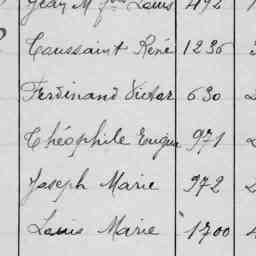 Jean M Louis 492
Toussaint René 1236
Ferdinand Victor 630
Théophile Eugène 971
Joseph Marie 972
Louis Marie 1700